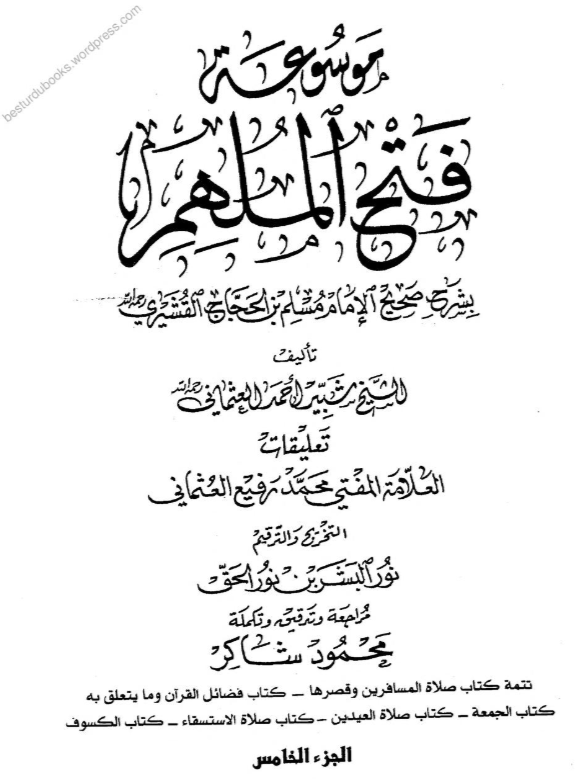 besturdubooks.wordpress.com
موسوعة
فتح الملهم
بشرح صحيح الإمام مسلم بن الحجاج القشيري رحمه الله
تأليف
الشيخ شبير أحمد العثماني رحمه الله
تعليقات
العلامة المفتي محمد رفيع العثماني
التخريج والترقيم
نور البشر بن نور الحق
مراجعة وتدقيق وتكملة
محمود شاكر
تتمة كتاب صلاة المسافرين وقصرها – كتاب فضائل القرآن وما يتعلق به
كتاب الجمعة – كتاب صلاة العيدين – كتاب صلاة الاستسقاء – كتاب الكسوف
الجزء الخامس